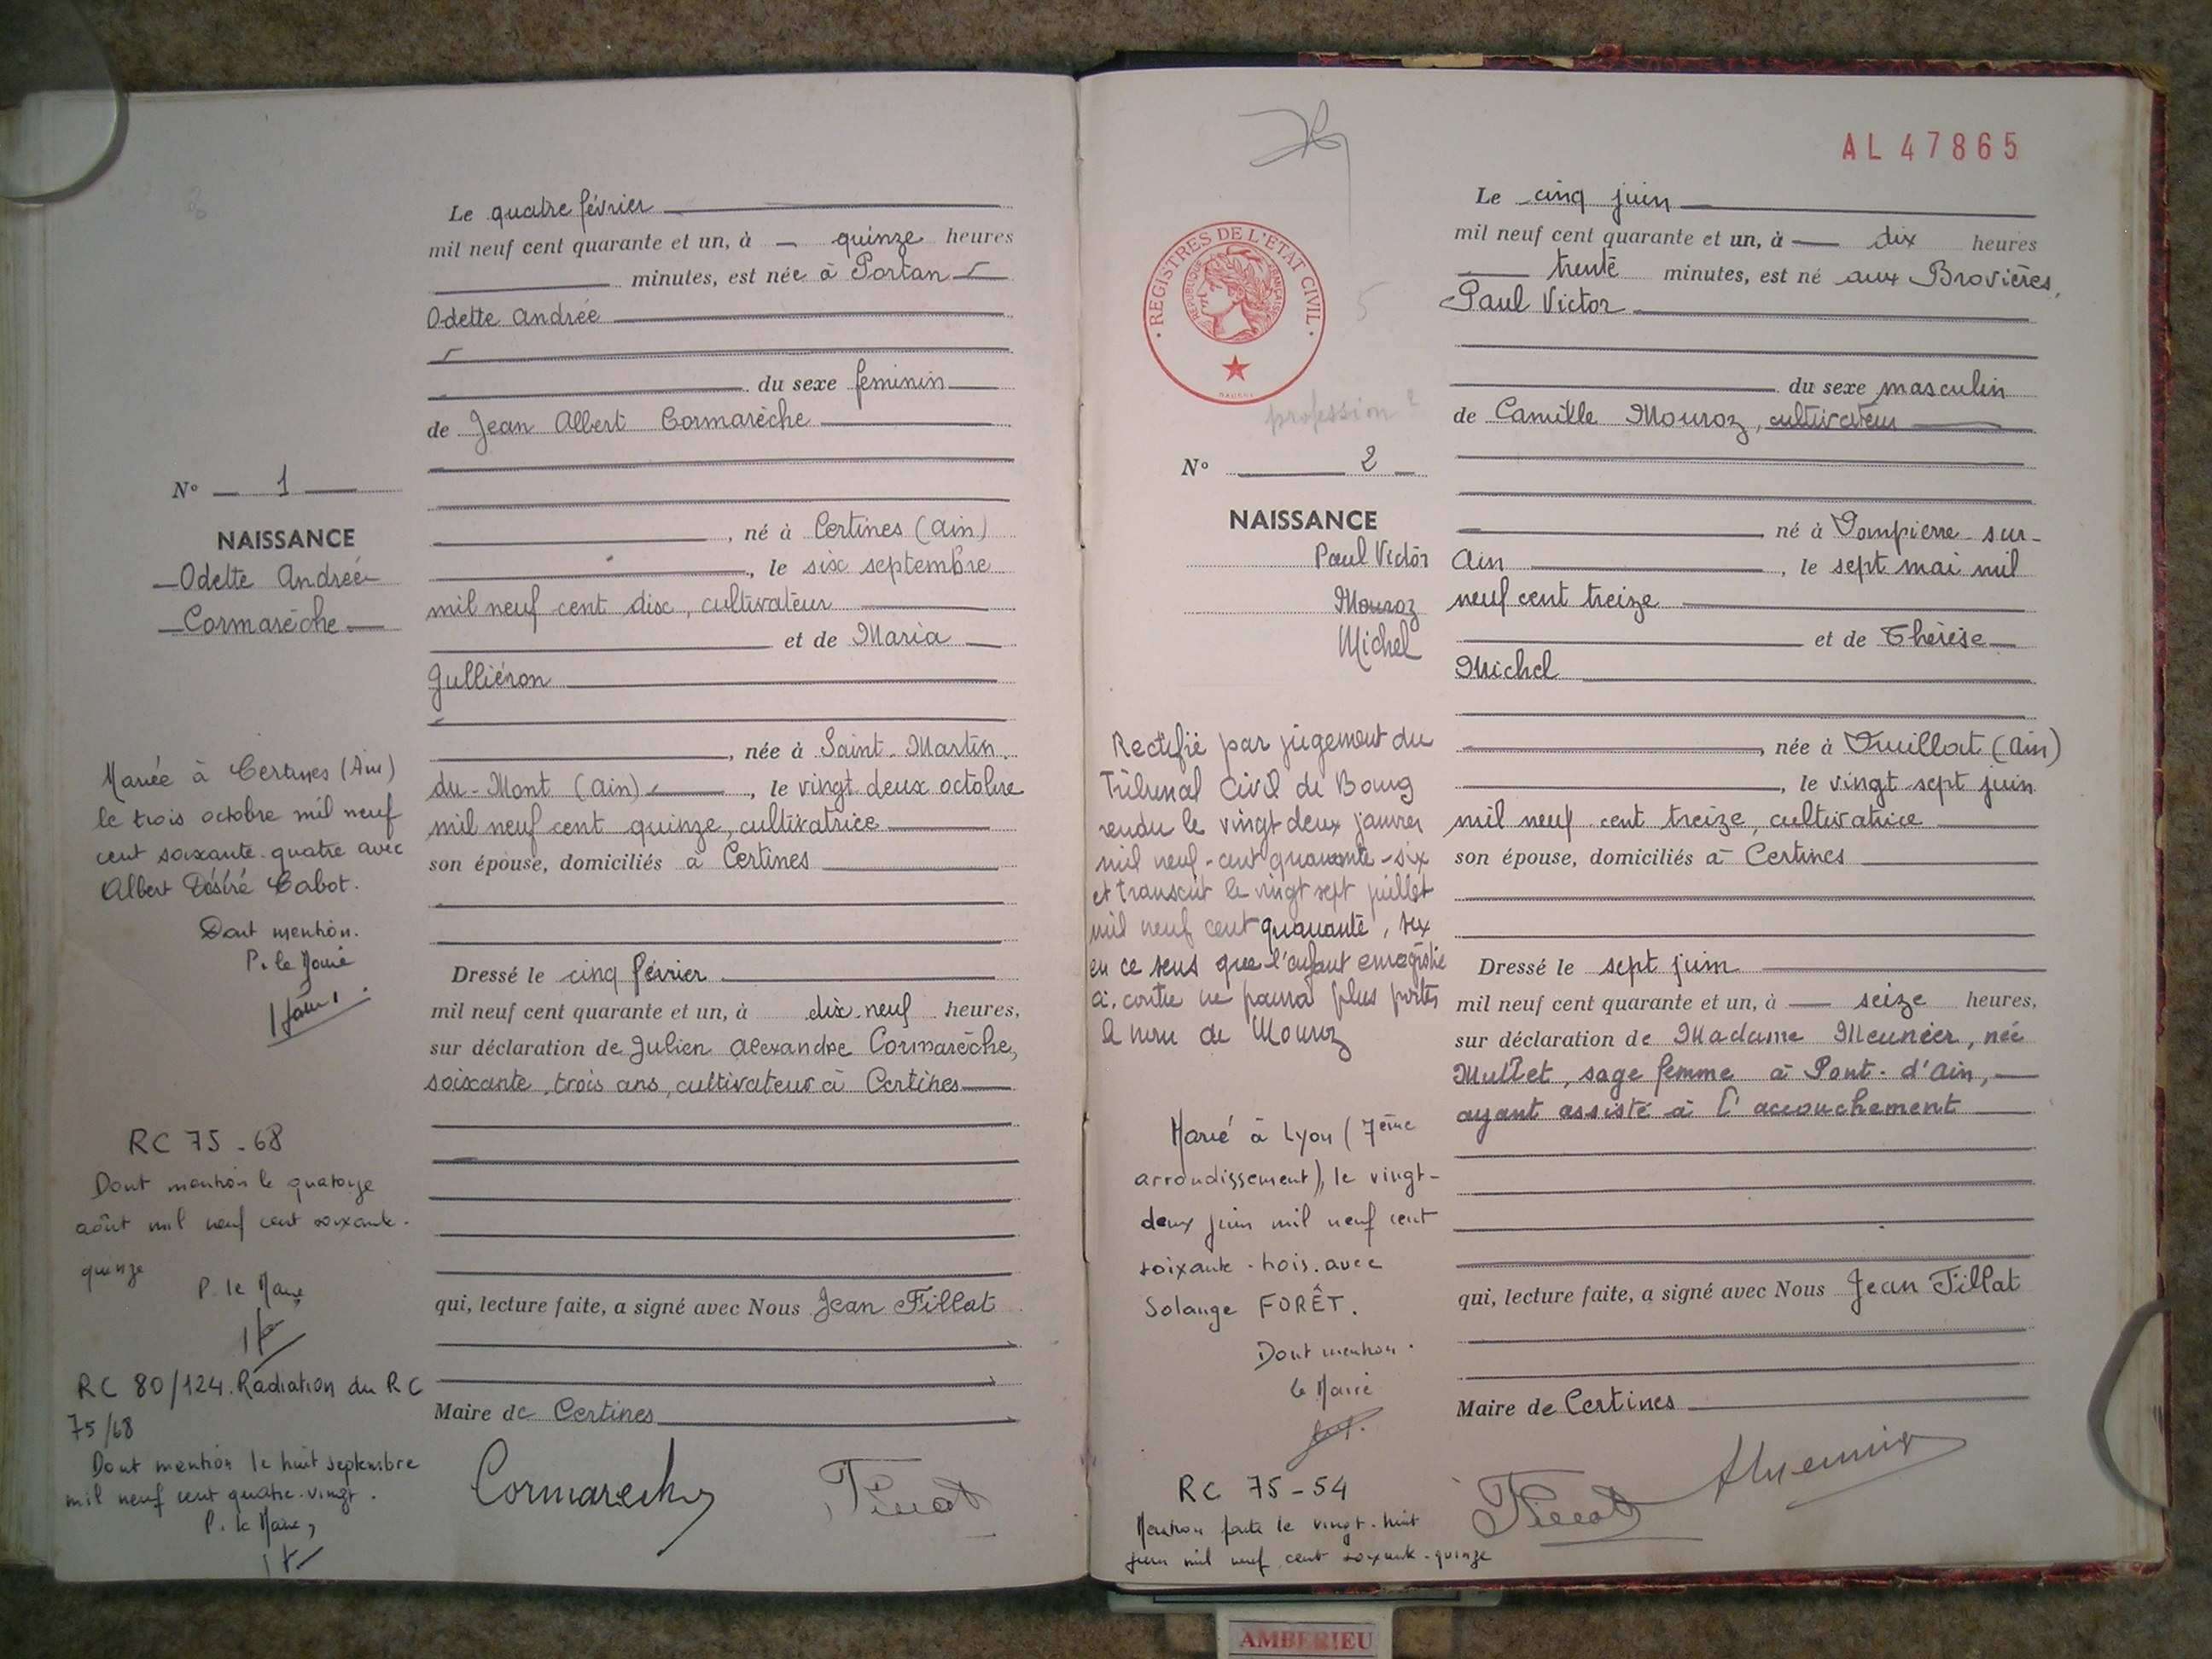 Le quatre février
mil neuf cent quarante et un, à quinze heures
minutes, est née à Portan
Odette Andrée
du sexe féminin
de Jean Albert Cormarèche
N° 1
NAISSANCE
Odette Andrée
Cormarèche
, né à Certines (Ain)
, le six septembre
mil neuf cent dix, cultivateur
et de Maria
Gulliéron
, née à Saint-Martin
du-Mont (Ain), le vingt deux octobre
mil neuf cent quinze, cultivatrice
son épouse, domiciliés à Certines
Dressé le cinq février
mil neuf cent quarante et un, à dix-neuf heures,
sur déclaration de Julien Alexandre Cormarèche,
soixante-trois ans, cultivateur à Certines
qui, lecture faite, a signé avec Nous Jean Tillat
Maire de Certines
Cormarech
Tillat
Mariée à Certines (Ain)
le trois octobre mil neuf
cent soixante-quatre avec
Albert Désiré Cabot.
Dont mention.
P. le Maire
RC 75-68
Dont mention le quatorze
août mil neuf cent soixante-
quinze
P. le Maire
RC 80/124. Radiation du RC
75/68
Dont mention le huit septembre
mil neuf cent quatre-vingt.
P. le Maire,
AL 47865
REGISTRES DE L'ETAT CIVIL
REPUBLIQUE FRANÇAISE
5
profession ?
Le cinq juin
mil neuf cent quarante et un, à dix heures
trente minutes, est né aux Brovières,
Paul Victor
du sexe masculin
de Camille Mouroz, cultivateur
N° 2
NAISSANCE
Paul Victor
Mouroz
Michel
né à Dompierre-sur-
Ain, le sept mai mil
neuf cent treize
et de Thérèse
Michel
, née à Druillat (Ain)
, le vingt-sept juin
mil neuf cent treize, cultivatrice
son épouse, domiciliés à Certines
Dressé le sept juin
mil neuf cent quarante et un, à seize heures,
sur déclaration de Madame Meunier, née
Mullet, sage femme à Pont-d'Ain,
ayant assisté à l'accouchement
qui, lecture faite, a signé avec Nous Jean Tillat
Maire de Certines
Tillat
Rectifié par jugement du
Tribunal Civil de Bourg
rendu le vingt deux janvier
mil neuf-cent quarante-six
et transcrit le vingt sept juillet
mil neuf cent quarante, six
en ce sens que l'enfant enregistré
ci-contre ne pourra plus porter
le nom de Mouroz
Marié à Lyon (7ème
arrondissement), le vingt-
deux juin mil neuf cent
soixante-trois avec
Solange FORÊT.
Dont mention.
le Maire
RC 75-54
Mention faite le vingt-huit
juin mil neuf cent soixante-quinze
AMBERIEU